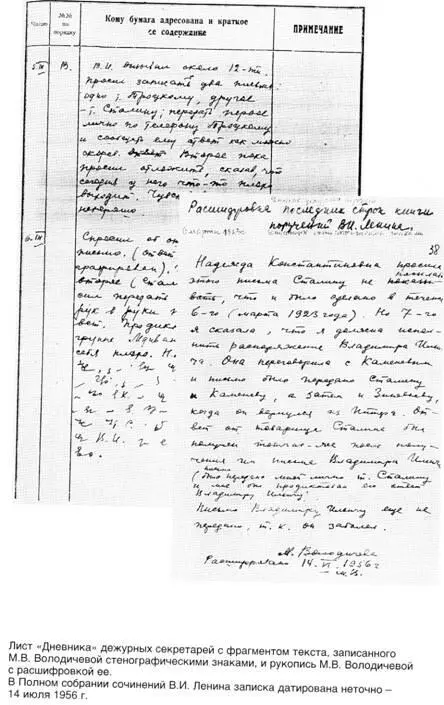 Число
№№ по порядку
Кому бумага адресована и краткое
ее содержание
ПРИМЕЧАНИЕ
5.III
В.
В.И. вызывал около 12-ти.
Просил записать два письма:
одно т. Троцкому, другое
– т. Сталину; передать первое
лично по телефону Троцкому
и сообщить ему ответ как можно
скорее. Второе пока
просил отложить, сказав, что
сегодня у него что-то плохо
выходит. Чувс
нехорошо
6.III
Спросил об от
письмо. (Ответ
графирован).
второе (Стал
сил передать
рук в руки
вет. Продик
группе Мдиван
себя плохо. Н.
Расшифровка последних строк книги
поручений В.И. Ленина.
38
Надежда Константиновна просила
этого письма Сталину не посылать,
что и было сделано в течение
6-го (марта 1923 года). Но 7-го
я сказала, что я должна испол-
нить распоряжение Владимира Иль-
ича. Она переговорила с Каменевым
и письмо было передано Сталину
и Каменеву, а затем и Зиновьеву,
когда он вернулся из Питера. От-
вет от товарища Сталина был
получен тотчас же после полу-
чения им письма Владимира Ильича
(было передано мной лично т. Сталину
и мне был продиктован его ответ
Владимиру Ильичу).
Письмо Владимиру Ильичу еще не
передано, т.к. он заболел.
М. Володичева
Расшифровано 14.VI 1956 г.
м.в.
Лист «Дневника» дежурных секретарей с фрагментом текста, записанного
М.В. Володичевой стенографическими знаками, и рукопись М.В. Володичевой
с расшифровкой ее.
В Полном собрании сочинений В.И. Ленина записка датирована неточно –
14 июля 1956 г.